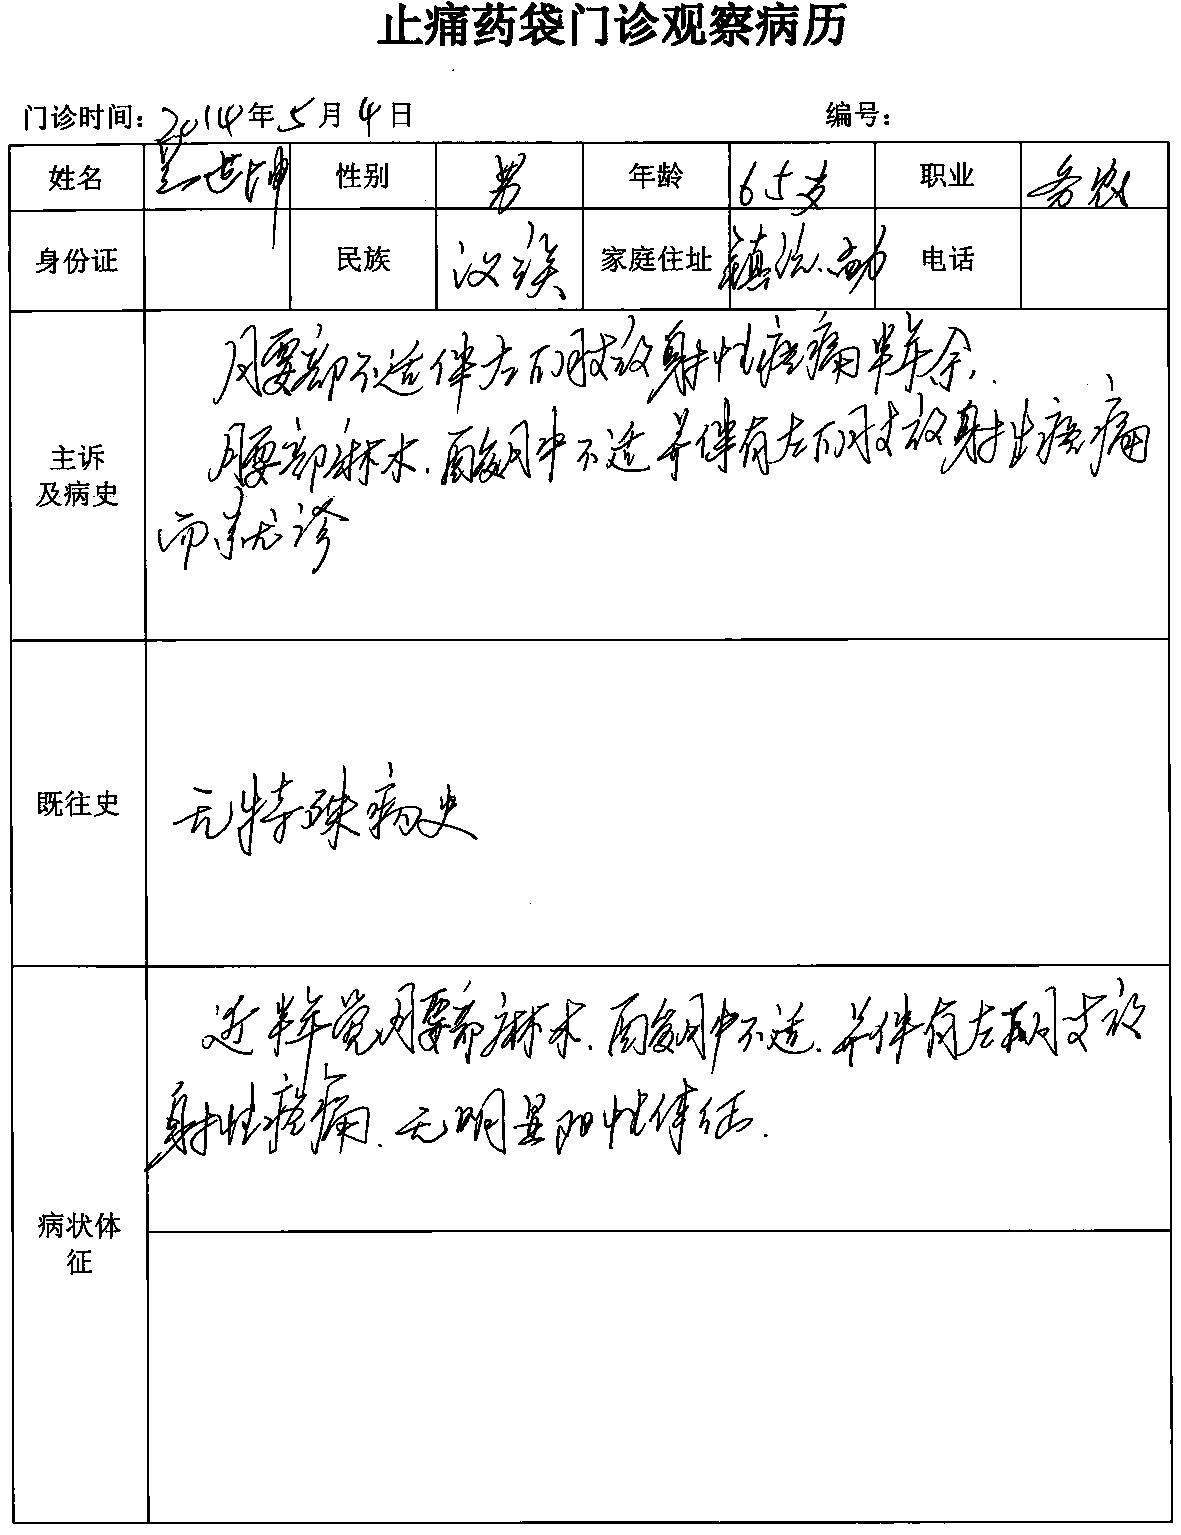 止痛药袋门诊观察病历
门诊时间：2014年5月4日 编号：
姓名 吴世坤 性别 男 年龄 65岁 职业 务农
身份证 民族 汉族 家庭住址 镇 电话
主诉及病史
腰部不适伴左下肢放射性疼痛半年余.
腰部麻木.酸肿不适并伴有左下肢放射性疼痛
而就诊
既往史 无特殊病史
病状体征
近半年觉腰部麻木.酸肿不适.并伴有左下肢放
射性疼痛.无明显阳性体征.